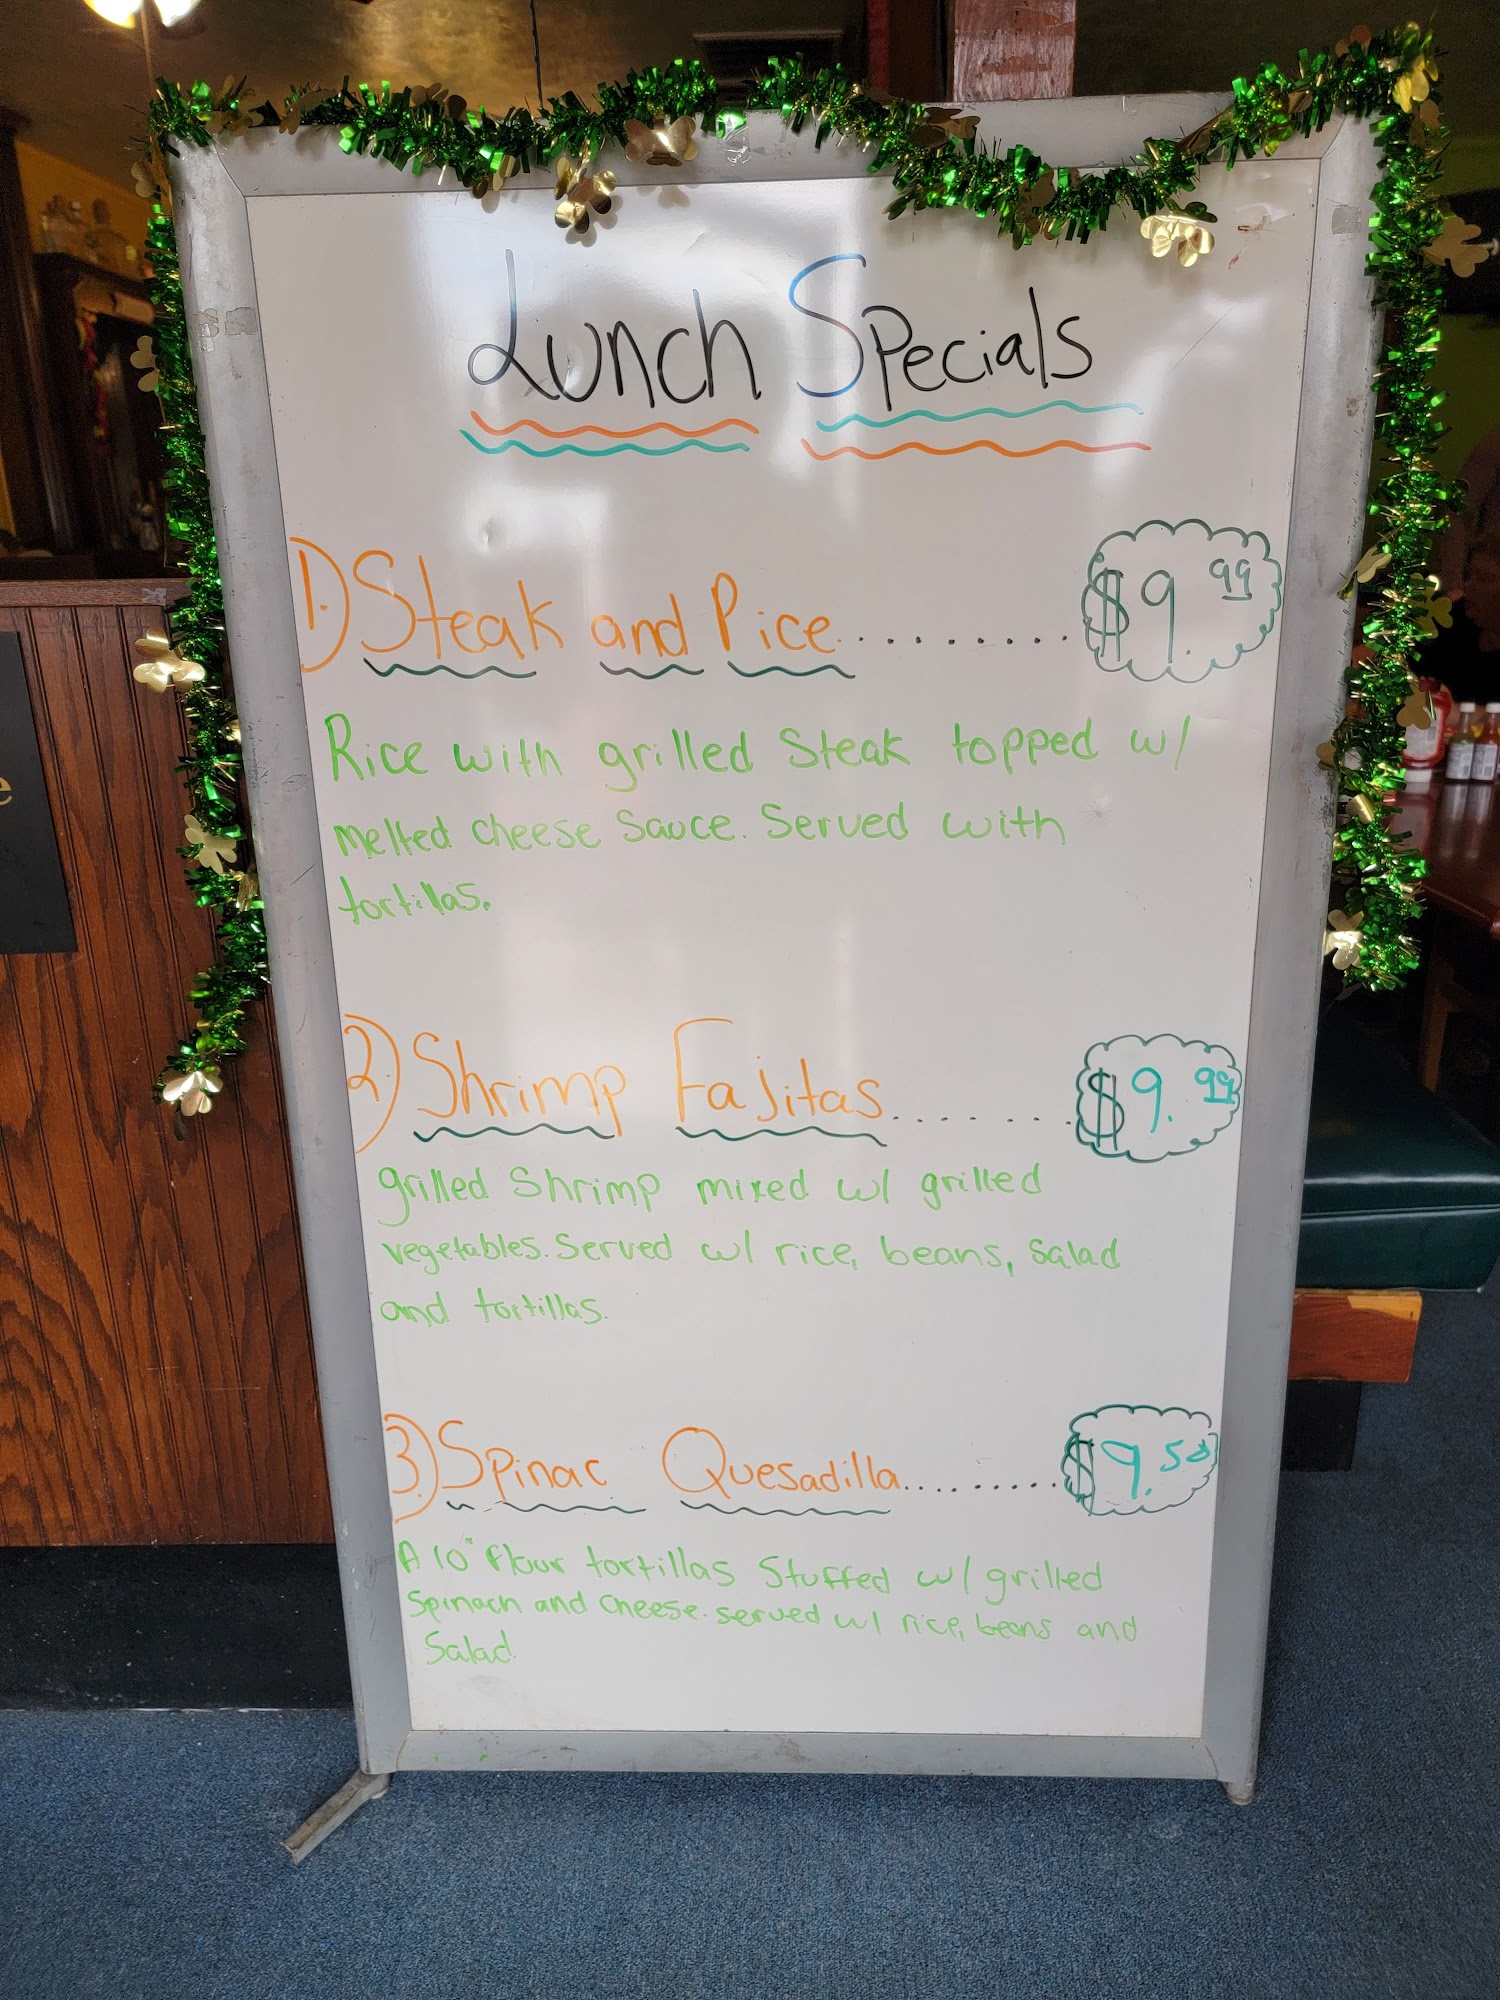 Lunch Specials
1.) Steak and Rice......... $9.99
Rice with grilled Steak topped w/
melted cheese sauce. Served with
tortillas.
2.) Shrimp Fajitas....... $9.99
grilled Shrimp mixed w/ grilled
vegetables. Served w/ rice, beans, salad
and tortillas.
3.) Spinac Quesadilla......... $9.50
A 10" flour tortillas Stuffed w/ grilled
Spinach and Cheese. served w/ rice, beans and
Salad.
e